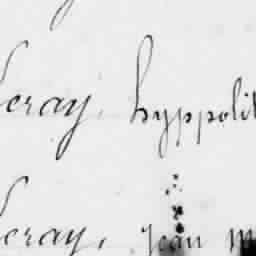 Leray, hyppolit
Leray, jean m